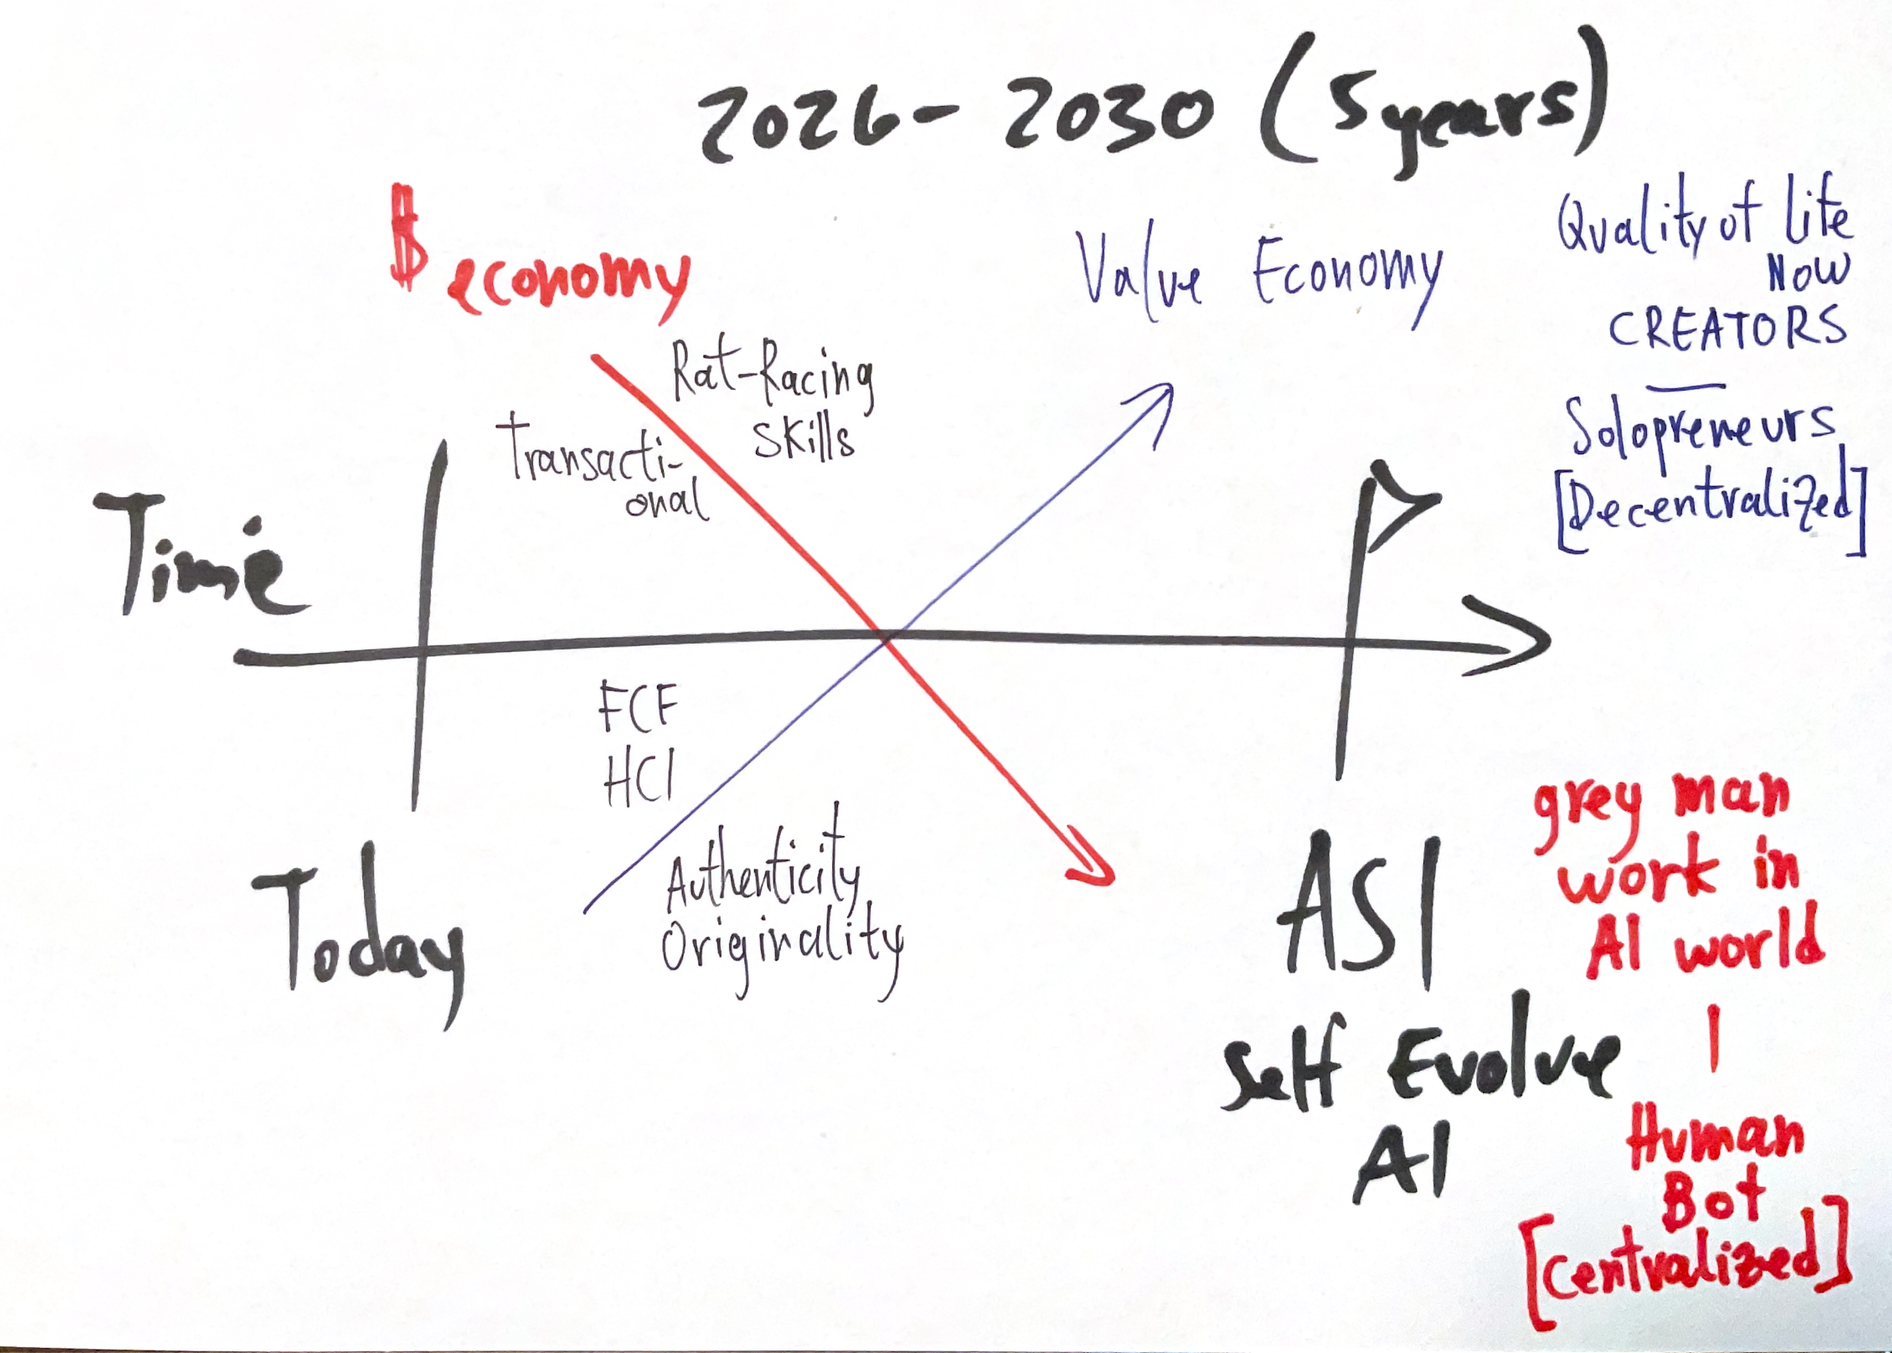 2026- 2030 (5years)
$ economy
Value Economy
Quality of life
NOW
CREATORS
Solopreneurs
[Decentralized]
Rat-Racing
skills
Transacti-
onal
Time
FCF
HCI
Authenticity
Originality
Today
ASI
Self Evolve
AI
grey man
work in
AI world
Human
Bot
[centralized]